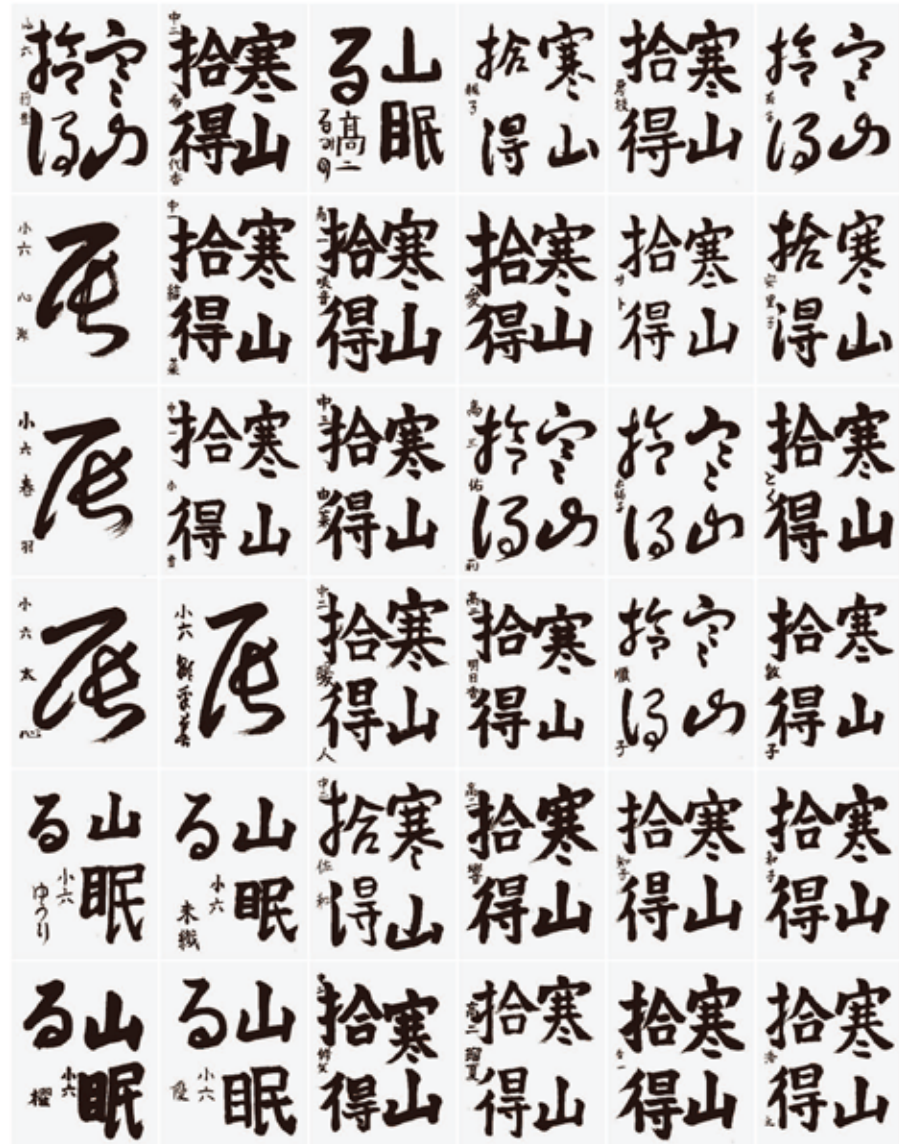 寒山
拾得
小六
寒山
拾得
中二
山眠
る
高二
寒山
拾得
楓子
寒山
拾得
寒山
拾得
辰
小六
寒山
拾得
中一 結葉
寒山
拾得
高一 咲音
寒山
拾得
愛
寒山
拾得
サト
寒山
拾得
安里子
辰
小六 春羽
寒山
拾得
中一 小雪
寒山
拾得
中三 由菜
寒山
拾得
高三 佑莉
寒山
拾得
寒山
拾得
とく
辰
小六 太心
辰
小六
寒山
拾得
中二 暖人
寒山
拾得
高二 明日香
寒山
拾得
寒山
拾得
敦子
山眠
る
小六
ゆうり
山眠
る
小六
未織
寒山
拾得
中二 佐和
寒山
拾得
高二 響
寒山
拾得
知子
寒山
拾得
和子
山眠
る
小六
櫂
山眠
る
小六
寒山
拾得
寒山
拾得
高二 瑠夏
寒山
拾得
寒山
拾得